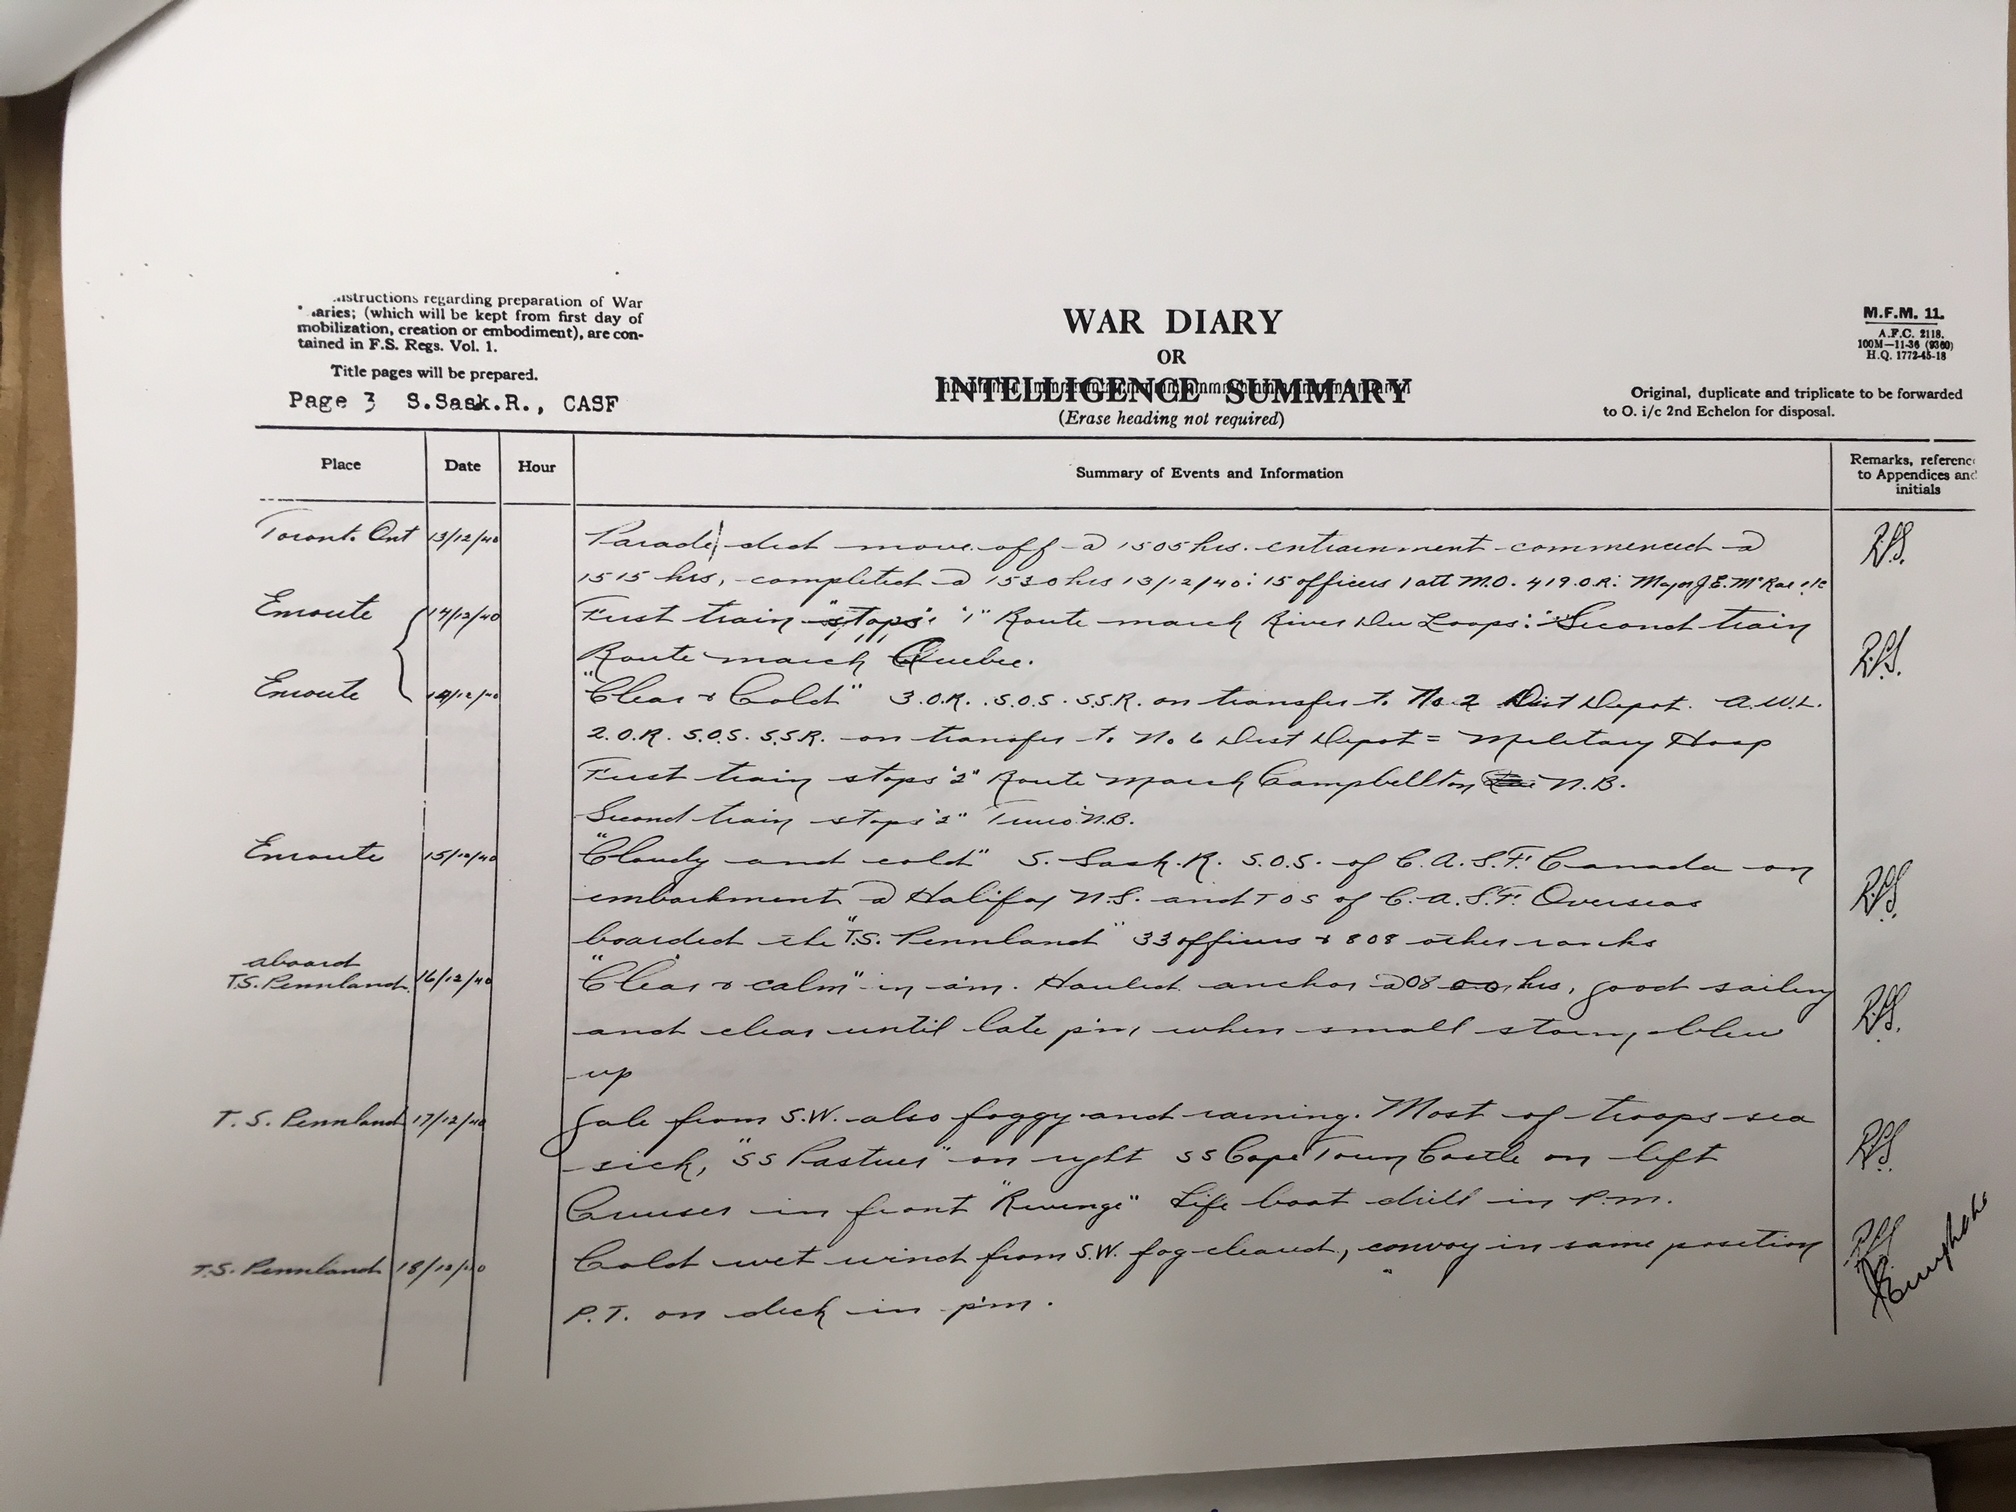 ...nstructions regarding preparation of War
...aries; (which will be kept from first day of
mobilization, creation or embodiment), are con-
tained in F.S. Regs. Vol. 1.
Title pages will be prepared.
Page 3 S.Sask.R., CASF
WAR DIARY
OR
INTELLIGENCE SUMMARY
(Erase heading not required)
M.F.M. 11.
A.F.C. 2118.
100M—11-36 (9360)
H.Q. 1772-45-18
Original, duplicate and triplicate to be forwarded
to O. i/c 2nd Echelon for disposal.
Place Date Hour Summary of Events and Information
Remarks, referenc
to Appendices and
initials
Toront. Ont 13/12/40 Parade move off @ 1505 hrs. entrainment commenced @
1515 hrs, completed @ 1530 hrs 13/12/40: 15 officers 1 att M.O. 419.O.R: Major J.E. McRae i/c
Enroute 14/12/40 First train "stops": "1" Route march River Du Loops: Second train
Route march Quebec.
Enroute 14/12/40 "Clear & Cold" 3.O.R. S.O.S. S.S.R. on transfer t. No. 2 Dist Depot. A.W.L.
2.O.R. S.O.S. S.S.R. on transfer t. No 6 Dist Depot = Military Hosp
First train stops "2" Route March Campbellton N.B.
Second train stops "2" Truro N.B.
Enroute 15/12/40 "Cloudy and cold" S. Sask. R. S.O.S. of C.A.S.F. Canada on
embarkment @ Halifax N.S. and TOS of C.A.S.F. Overseas
boarded the "T.S. Pennland" 33 officers & 808 other ranks
aboard
T.S. Pennland. 16/12/40 "Clear & calm" in am. Hauled anchor @ 0800 hrs, good sailing
and clear until late pm, when small storm, blew
up
T. S. Pennland 17/12/40 Gale from S.W. also foggy and raining. Most of troops sea
sick, "SS Pasteur" on right SS Cape Town Castle on left
Cruiser in front "Revenge" Life boat drill in P.m.
T.S. Pennland 18/12/40 Cold wet wind from S.W. fog cleared, convoy in same position
P.T. on deck in pm.